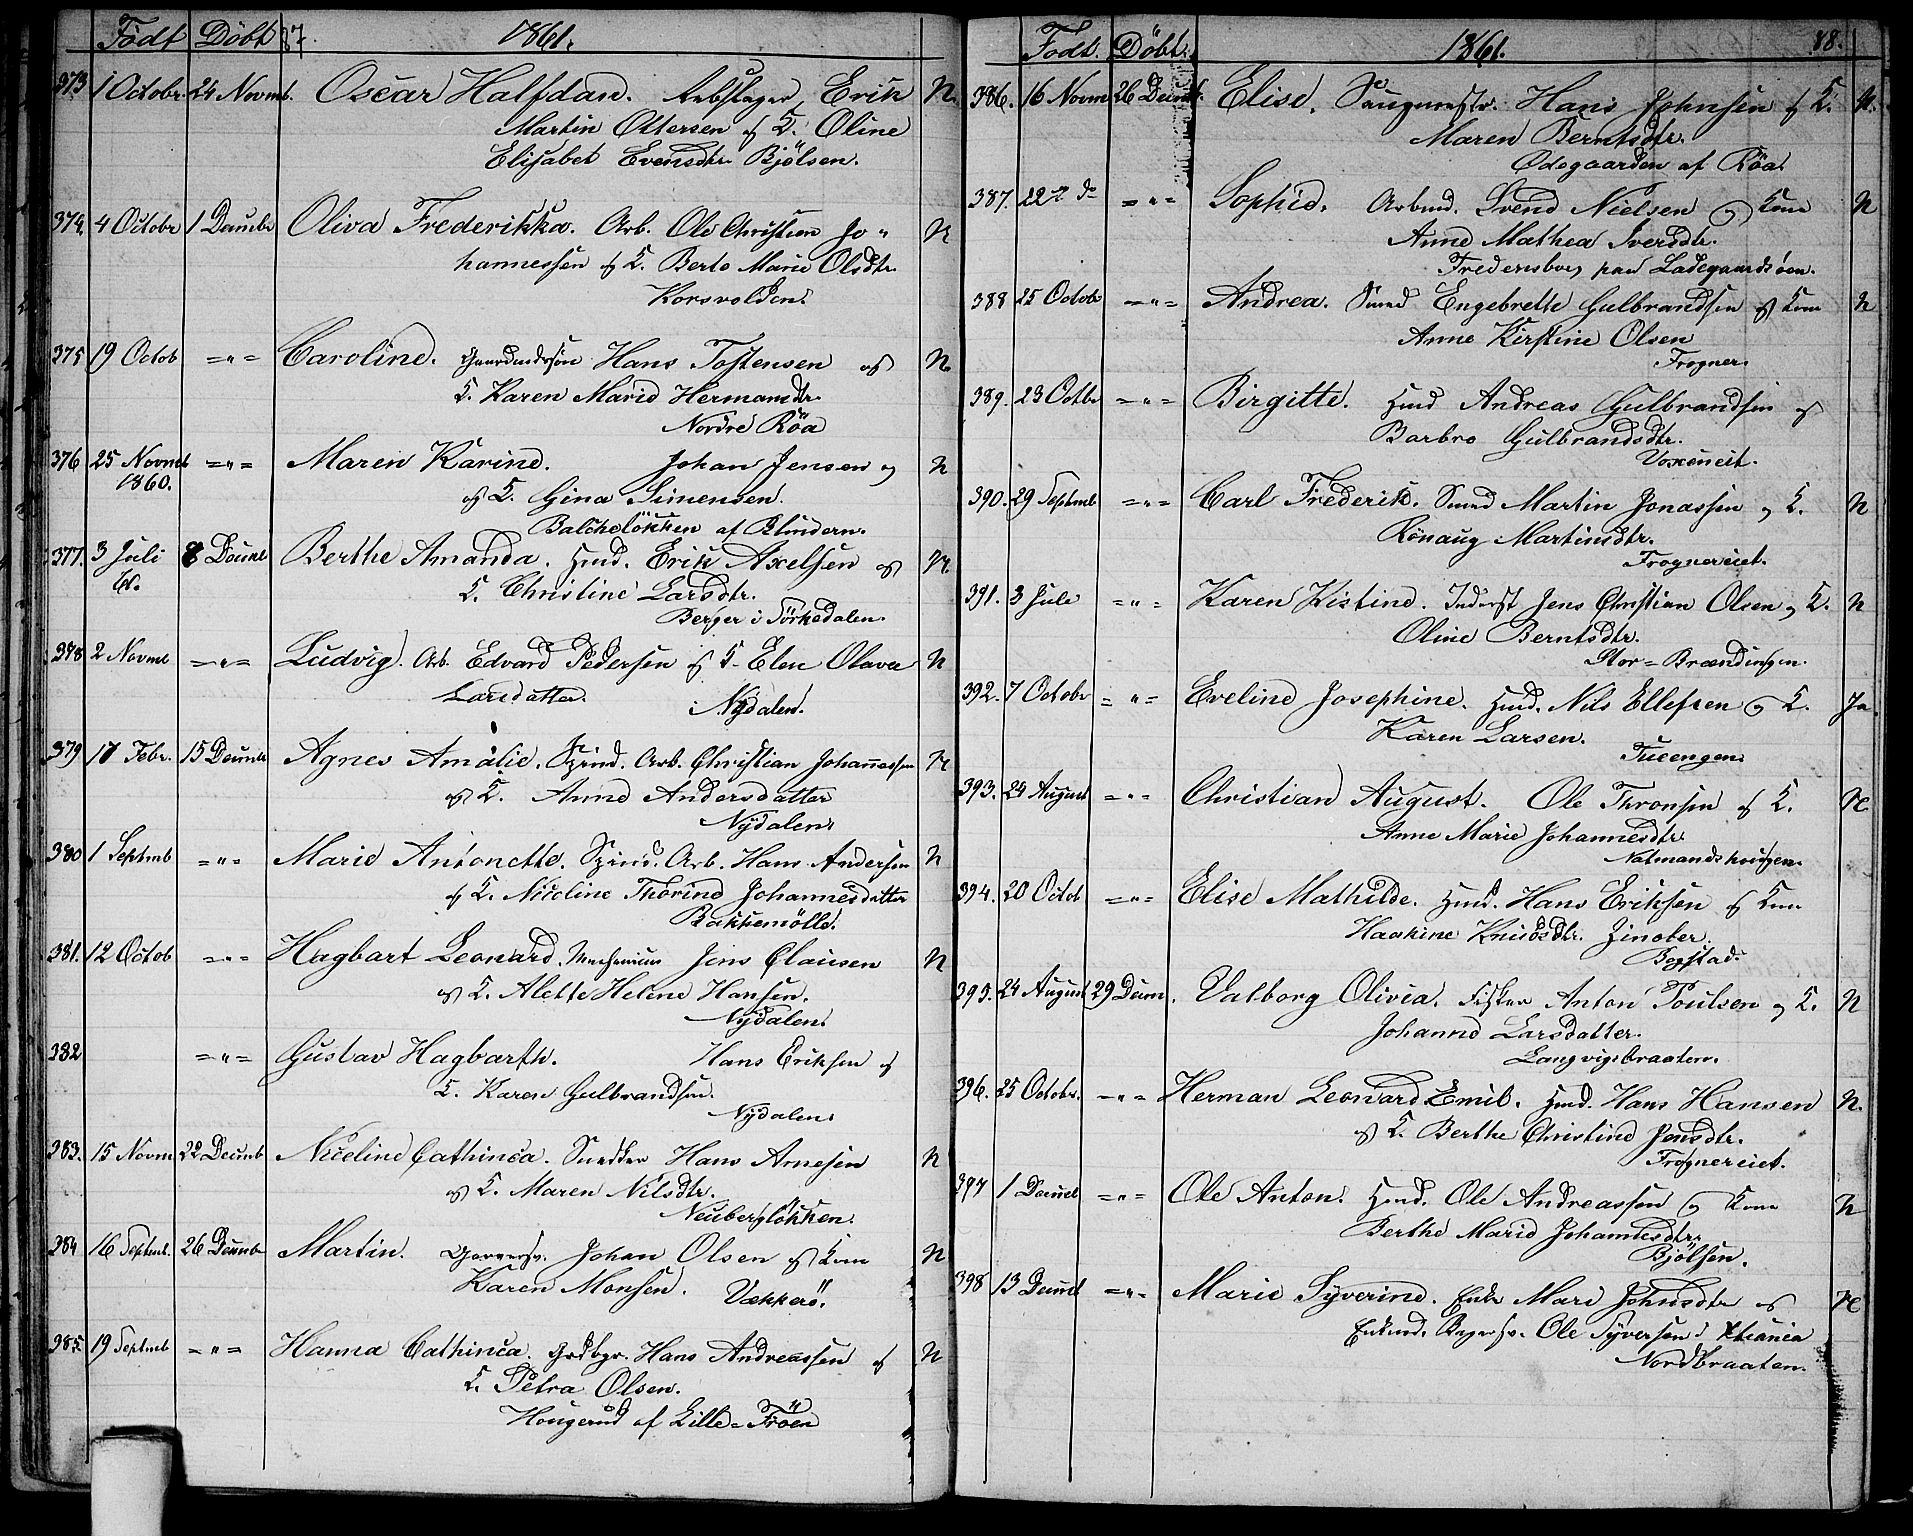 Födt Döbt 87. 1861.
373 1 Octobr. 24 Novmb. Oscar Halfdan. Rebslager Erik N.
Martin Ottersen og K. Oline
Elisabet Evensdtr. Bjölsen.
374. 4 Octobr 1 Decmbr Oliva Frederikka. Arb. Ole Christian Jo- N
hannessen og K. Berte Marie Olsdtr.
Korsvolden.
375 19 Octob = " = Caroline. Gaardmdssön Hans Tostensen og N.
K. Karen Marie Hermansdtr.
Nordre Röa
376 25 Novmb = " = Maren Karine. Johan Jensen og N
1860.
og K. Gina Simensen.
Balchelökken af Blindern.
377. 3 Juli 8 Decmb Berthe Amanda. Hmd. Erik Axelsen og N.
61.
K. Christine Larsdtr.
Berger i Sörkedalen.
378 2 Novmb = " = Ludvig. Arb. Edvard Pedersen og K. Elen Olava N
Larsdatter. Nydalen.
379 17 Febr. 15 Decmb Agnes Amalie. Spind. Arb. Christian Johannessen N
og K. Anne Andersdatter
Nydalen.
380 1 Septmb = " = Marie Antonette. Spind. Arb. Hans Andersen N
og K. Nicoline Thorine Johannesdatter
Bakkemölle.
381. 12 Octob = " = Hagbart Leonard. Mechanicus Jens Clausen N
og K. Alette Helene Hansen.
Nydalen.
382 = " = Gustav Hagbarth. Hans Eriksen og
K. Karen Gulbrandsen.
Nydalen.
383. 15 Novm 22 Decmb Niceline Cathinca. Snedker Hans Arnesen N
og K. Maren Nilsdtr.
Neuberglökken.
384 16 Septmb. 26 Decmbr Martin. Garversv. Johan Olsen og Kone N
Karen Monsen. Vækkerö.
385. 19 Septmb = " = Hanna Cathinca. Grdbgr. Hans Andreassen og N
K. Petra Olsen.
Hougerud af Lille-Fröen
Födt. Döbt. 1861. 88.
386. 16 Novm 26 Decmb. Elise. Saugmestr. Hans Johnsen og K. N.
Maren Berntsdtr.
Ödegaarden af Röa.
387. 22 do = " = Sophie. Arbmd. Svend Nielsen og Kone N
Anne Mathea Iversdtr.
Frederiksborg paa Ladegaardsöen.
388 25 Octobr = " = Andrea. Smed Engebreth Gulbrandsen og Kone N
Anne Kirstine Olsen
Frogner.
389. 23 Octbr = " = Birgitte. Hmd Andreas Gulbrandsen og
Barbro Gulbrandsdtr.
Voxeneit.
390. 29 Septmb = " = Carl Frederik. Smed Martin Jonassen og K. N
Rönaug Martinsdtr.
Frognereiet.
391. 3 Juli = " = Karen Kistine. Inderst Jens Christian Olsen og K. N
Oline Berntsdtr.
Stor-Brændingen.
392. 7 Octobr = " = Eveline Josephine. Hmd. Nils Ellefsen og K. Ja.
Karen Larsen.
Tueengen.
393. 24 August = " = Christian August. Ole Thronsen og K. N.
Anne Marie Johannesdtr.
Natmandshougen.
394. 20 Octob = " = Elise Mathilde. Hmd. Hans Eriksen og Kone
Haakine Knudsdtr. Zinober.
Bogstad.
395. 24 August 29 Decm. Valborg Olivia. Fisker Anton Poulsen og K. N
Johanne Larsdatter.
Langvigsbraaten.
396. 25 Octobr. = " = Herman Leonard Emil. Hmd. Hans Hansen N.
og K. Berthe Christine Jensdtr.
Frognereiet.
397 1 Decmb = " = Ole Anton. Hmd. Ole Andreassen og Kone N
Berthe Marie Johannesdtr.
Bjölsen.
398 13 Decmb = " = Marie Syverine. Enke Mari Johnsdtr og N
Enkemd. Bagersv. Ole Syversen Xtiania
Nordbraaten.